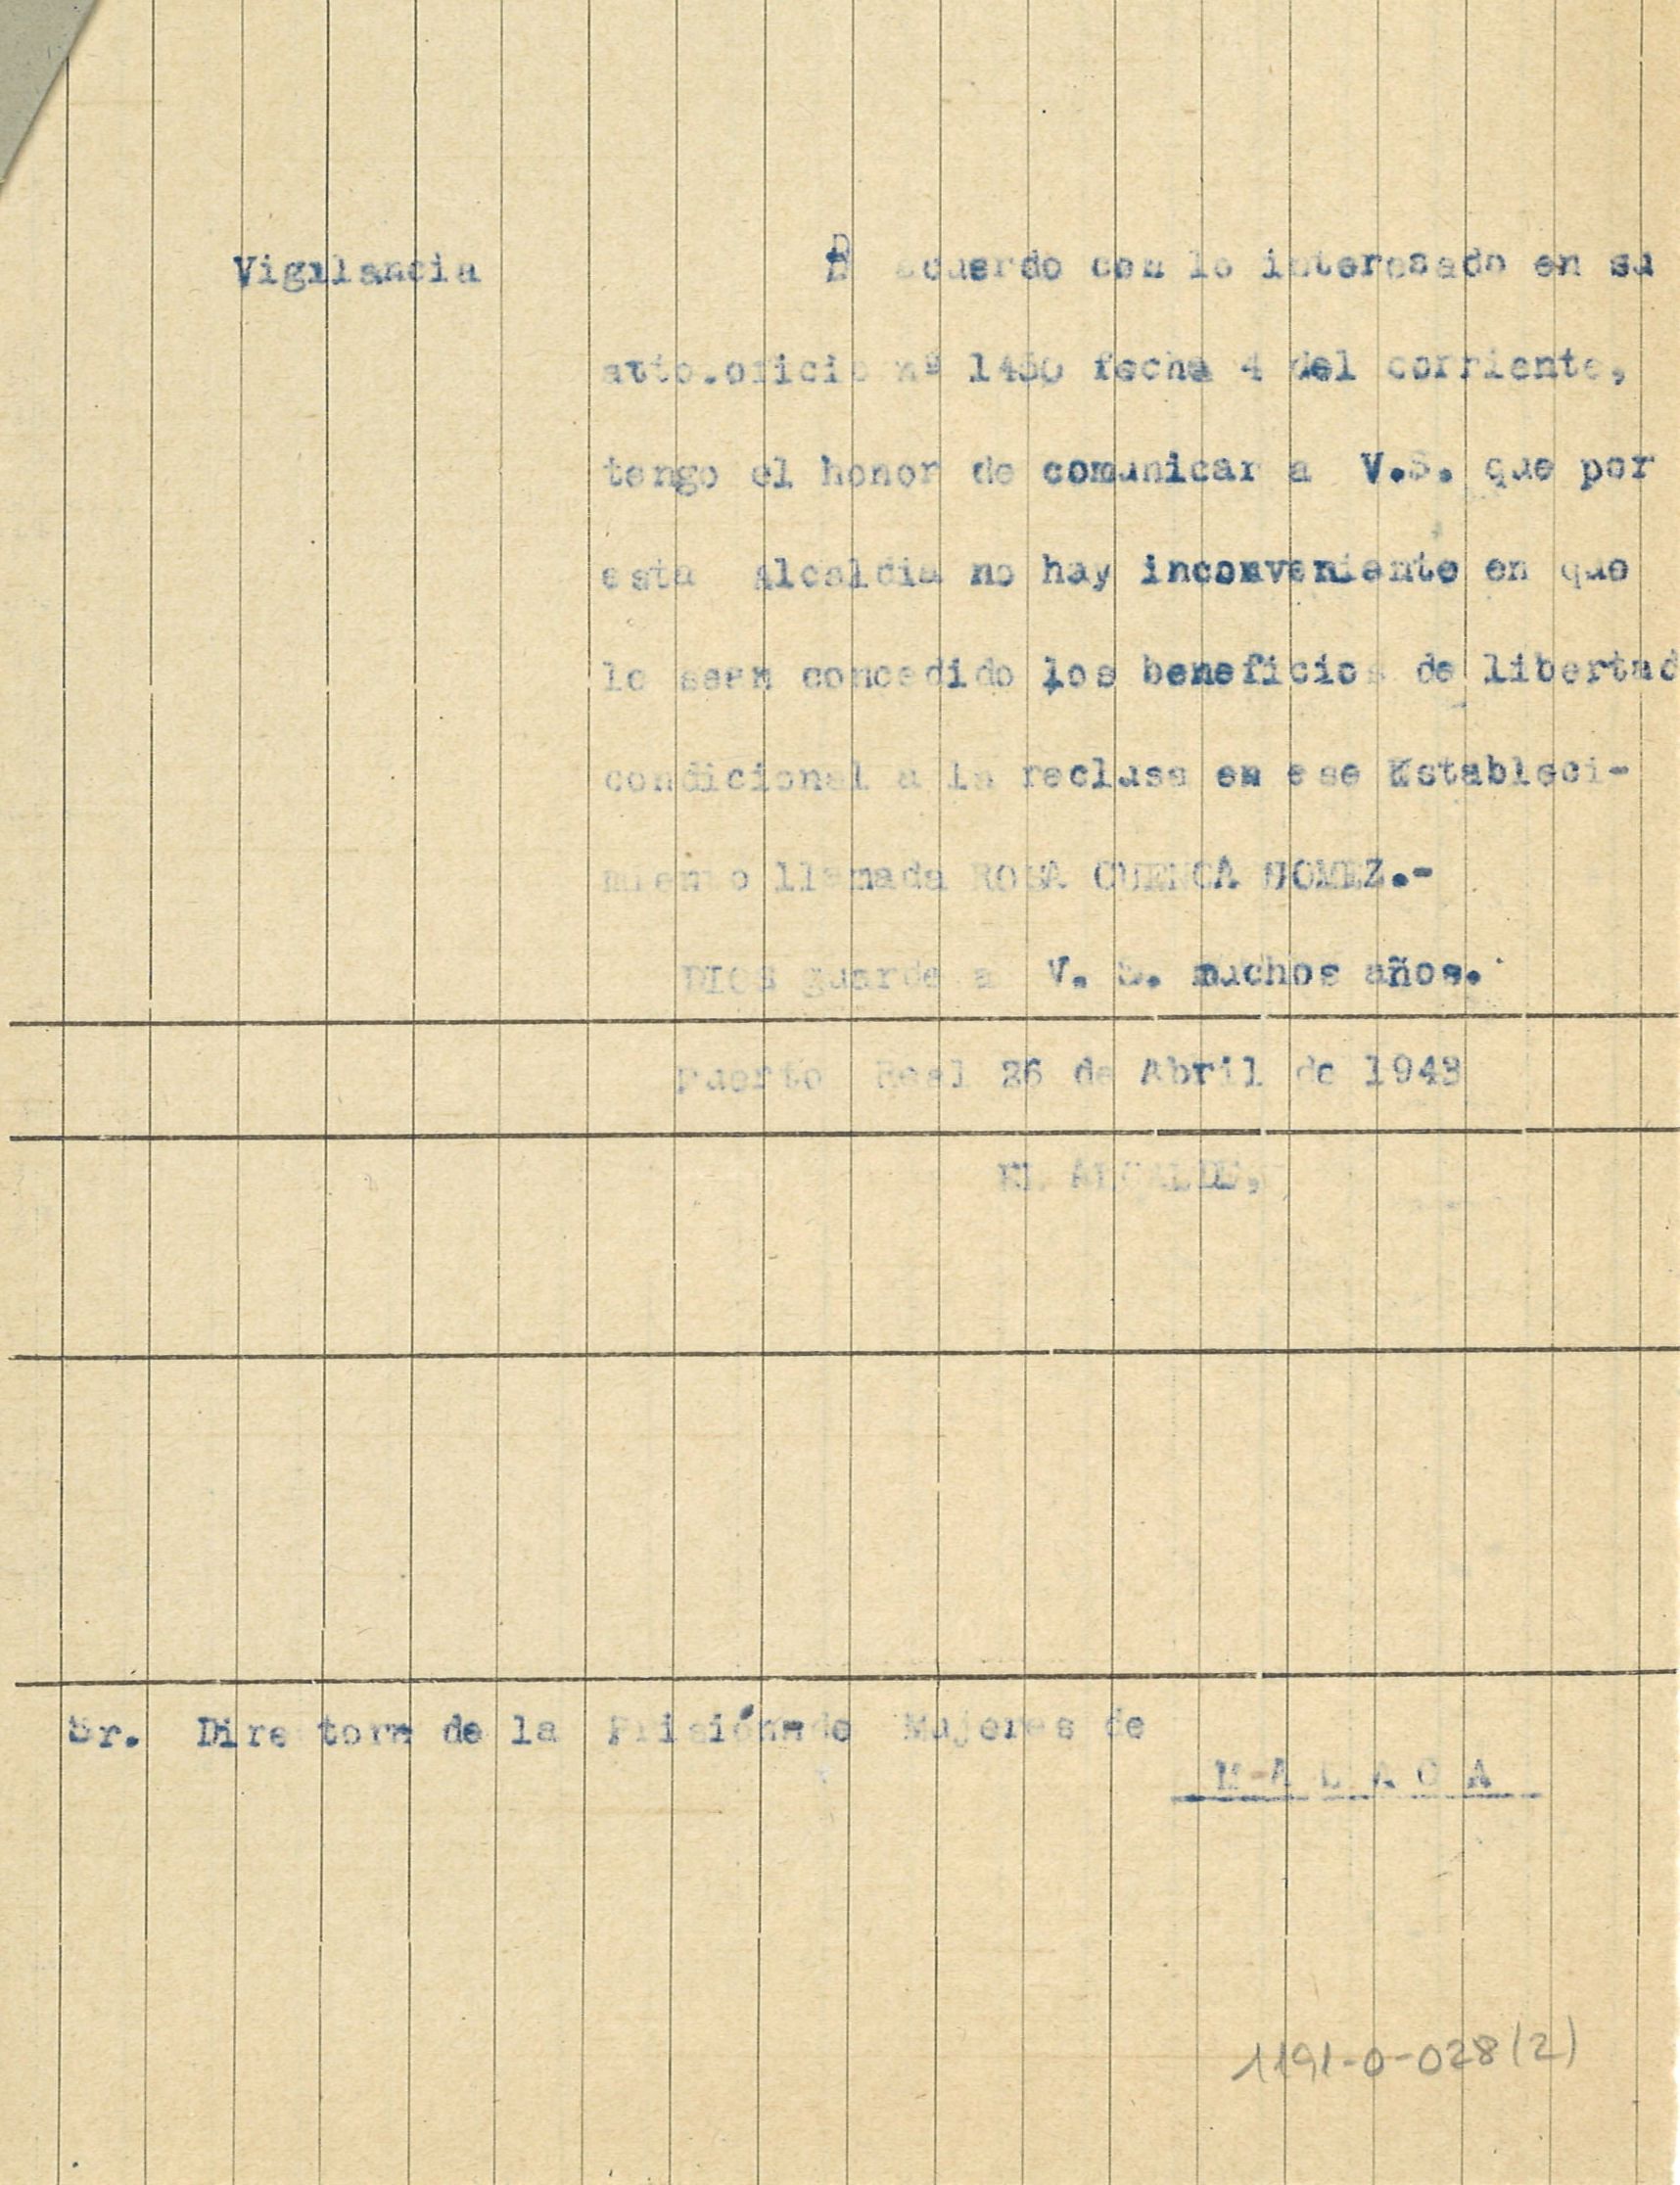 Vigilancia
D acuerdo con lo interesado en su
atto.oficio nº 1450 fecha 4 del corriente,
tengo el honor de comunicar a V.S. que por
esta Alcaldia no hay inconveniente en que
le sean concedido los beneficios de libertad
condicional a la reclusa en ese Estableci-
miento llamada ROSA CUENCA GOMEZ.-
DIOS guarde a V. S. muchos años.
Puerto Real 26 de Abril de 1943
EL ALCALDE,
Sr. Directora de la Prisión de Mujeres de
M A L A G A
1191-0-028(2)